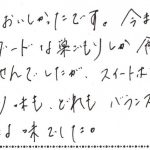 おいしかったです。今ま
ゲードは巣ごもりしか食
せんでしたが、スイートポ
り味も、どれもバランス
な味でした。